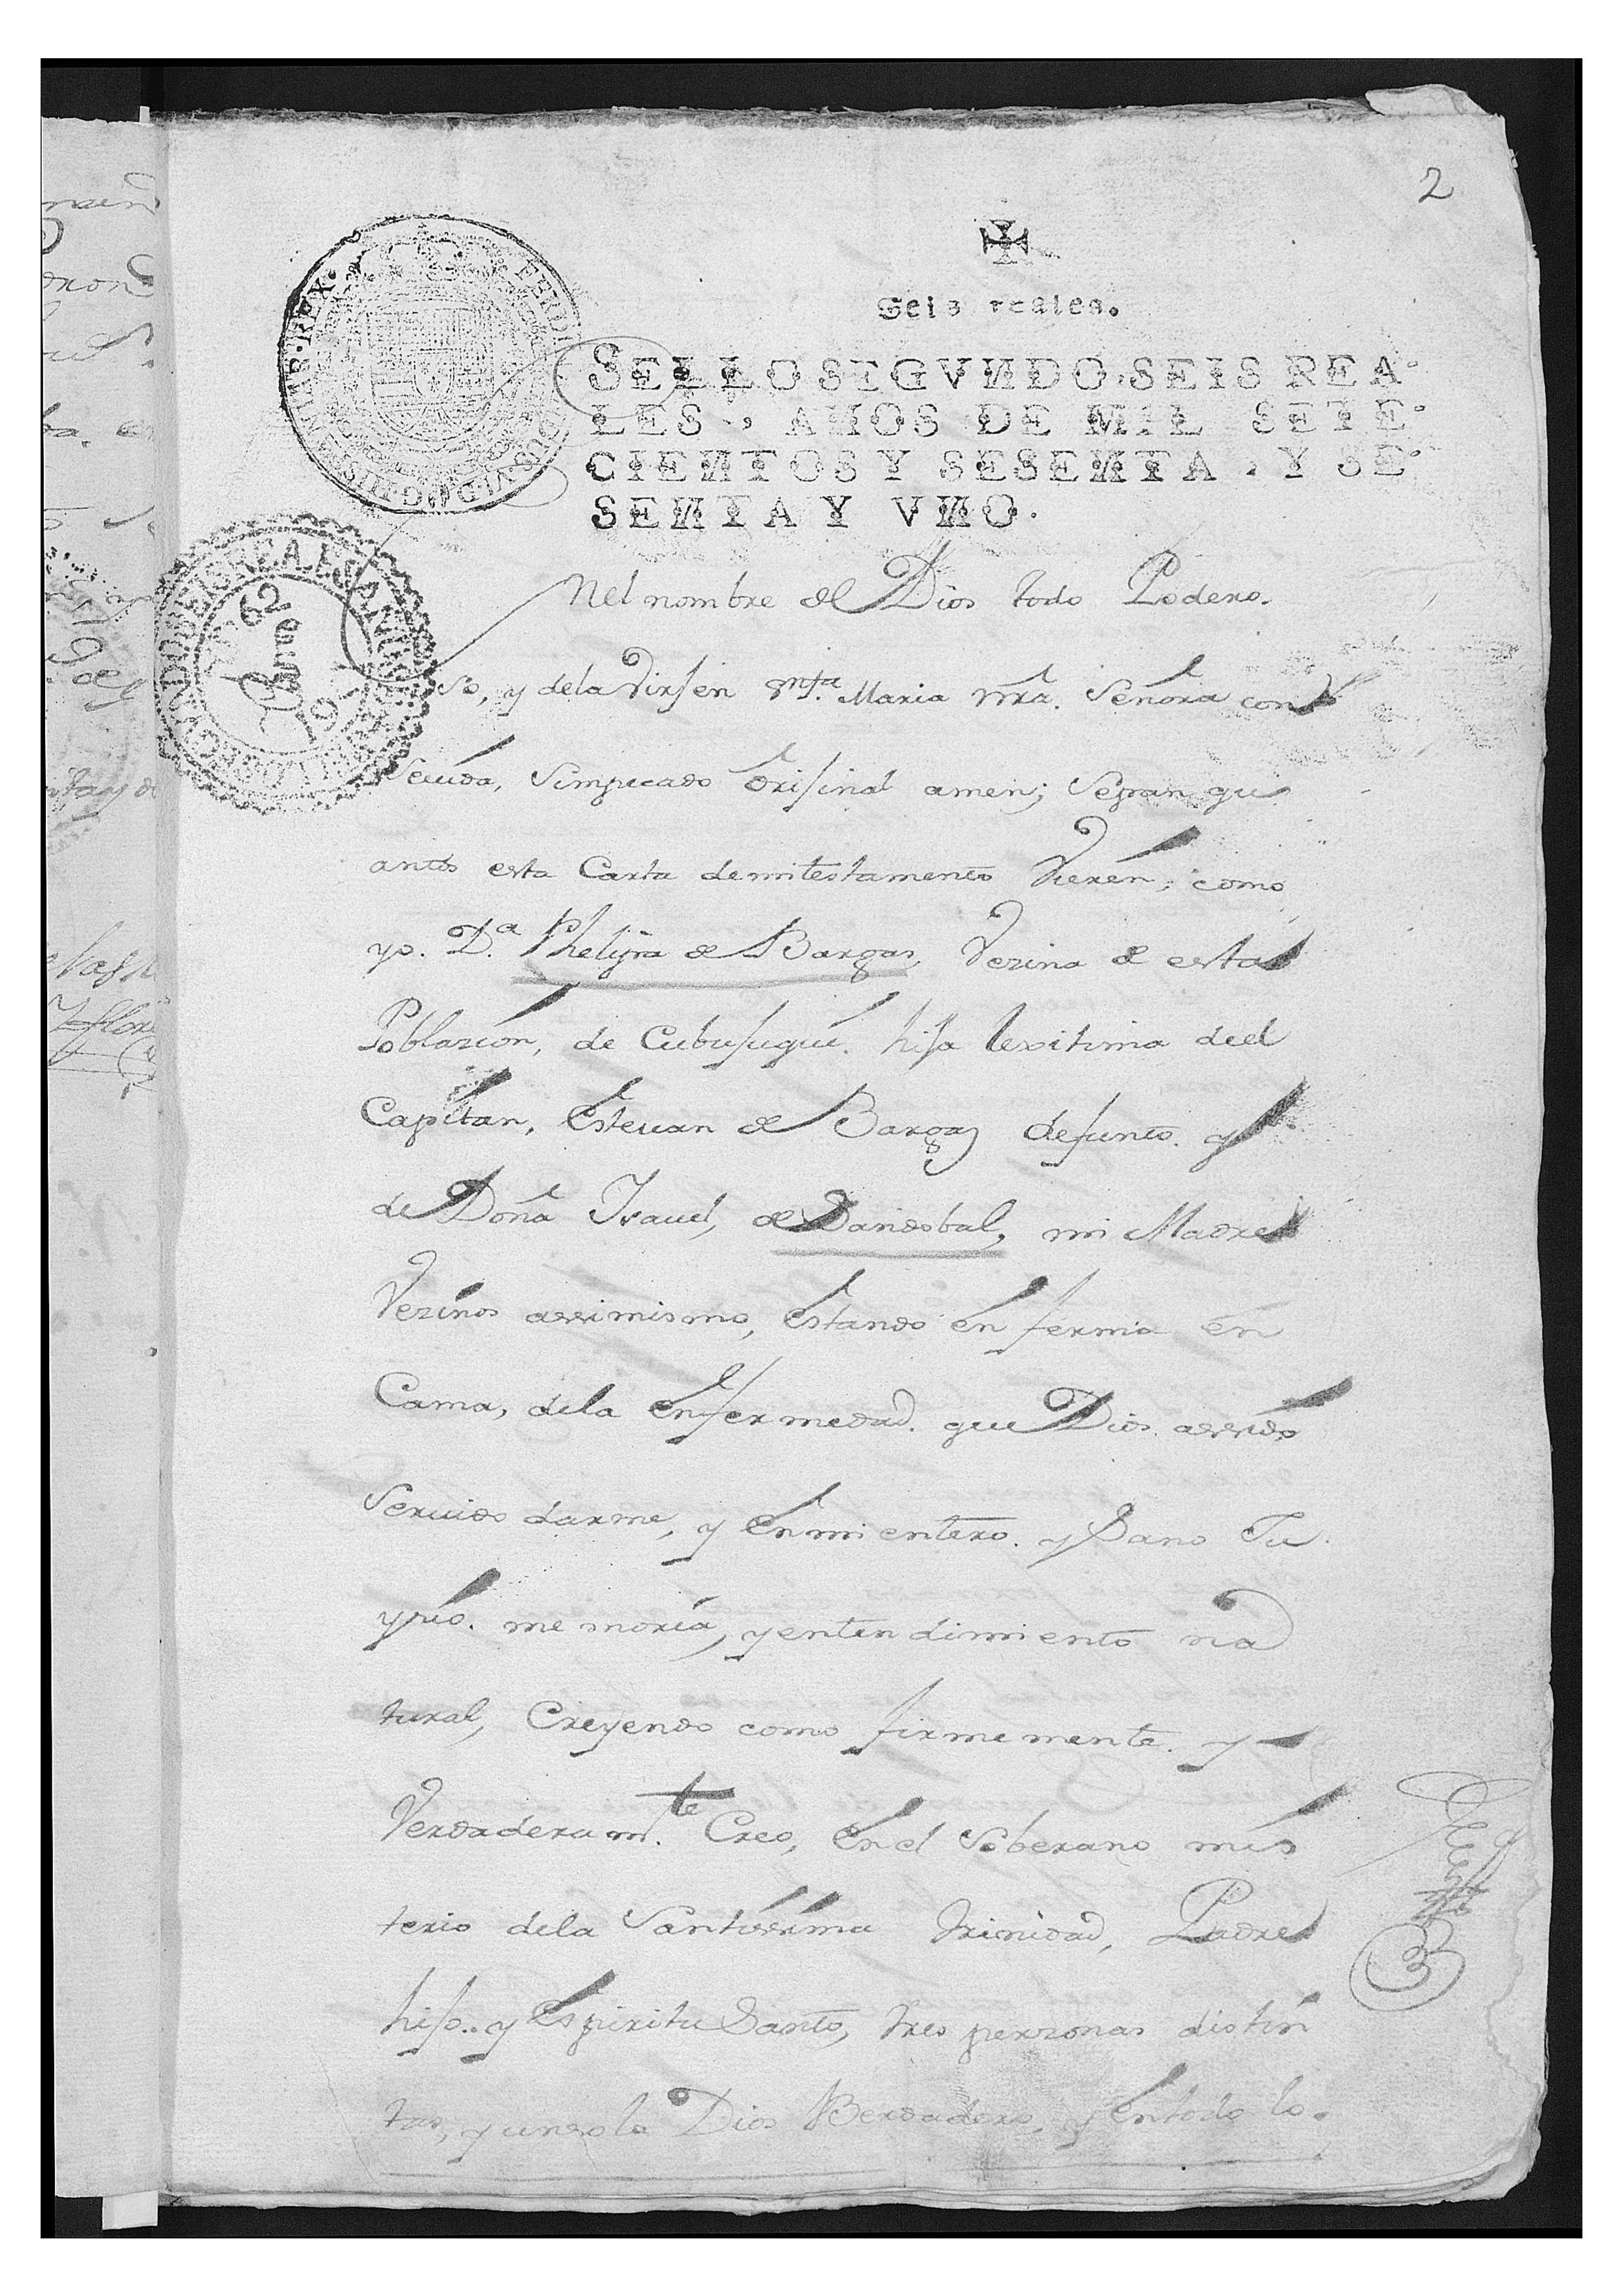 2
Seis reales.
SELLO SEGVNDO, SEIS REA-
LES, AÑOS DE MIL SETE-
CIENTOS Y SESENTA, Y SE-
SENTA Y VNO.
Nel nombre de Dios todo Podero-
so, y dela Virjen Snta. Maria nra. Señora con
sevida, Sinpecado Orijinal amen; Sepan qu
antos esta Carta demitestamento Vieren, como
yo. Da. Phelipa de Bargas, Vezina de esta
Poblazion, de Cubujuqui. hija lexitima deel
Capitan, Estevan de Bargas defunto. y
de Doña Isavel, de Sandobal, mi Madre
Vezinos assimismo, Estando en ferma en
Cama, dela enfermedad. que Dios assido
Servido darme, y en mi entero. y Sano Ju
yzio. memoria, y entendimiento na
tural, Creyendo como firmemente. y
Verdaderamte. Creo, en el Soberano mis
terio dela Santissima trinidad, Padre
hijo. y Espiritu Santo, tres perzonas distin
tas, y unsolo Dios Berdadero, y entodo lo.